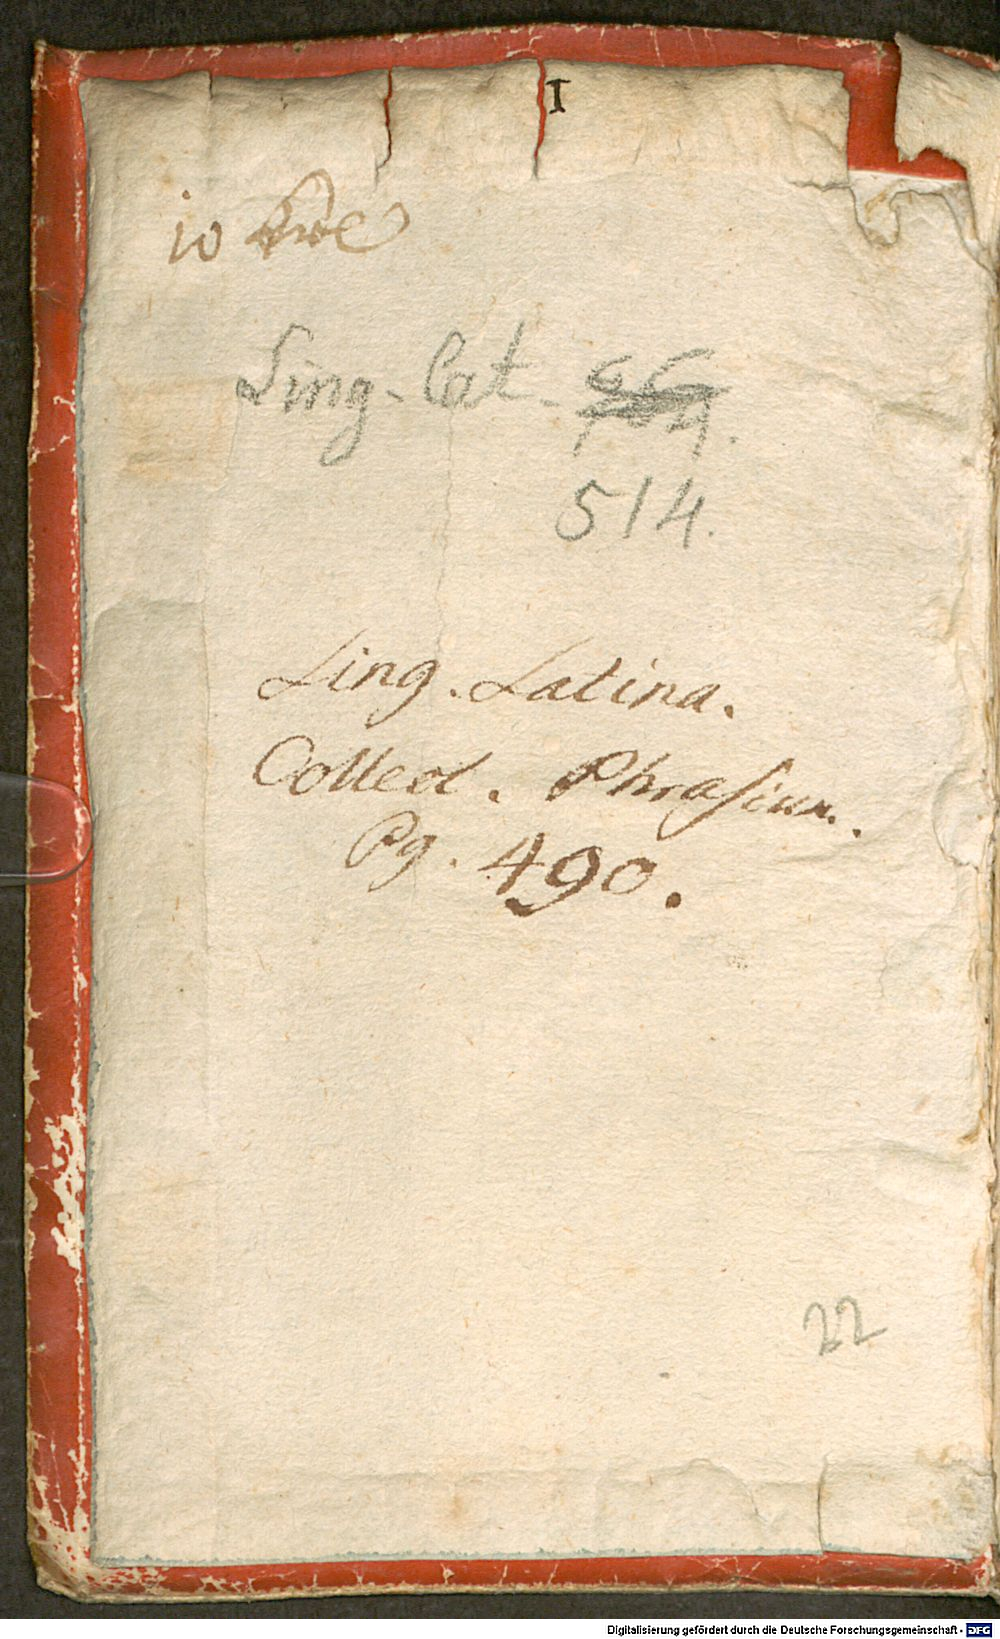 I
10
Ling. lat.
514.
Ling. Latina.
Collect. Phrasium.
Pg. 490.
22
Digitalisierung gefördert durch die Deutsche Forschungsgemeinschaft - DFG